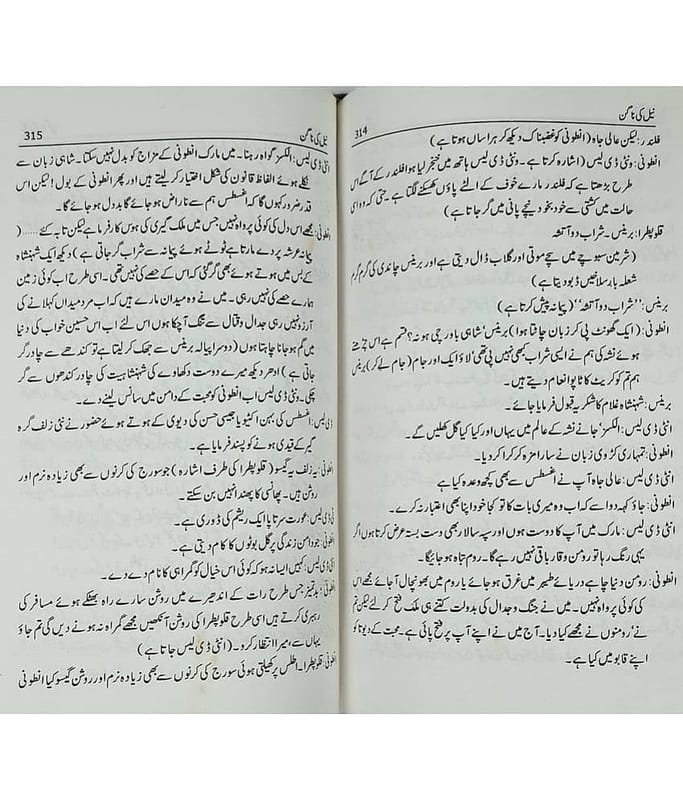 نیل کی ناگن
314
فلندر: لیکن عالی جاہ (انطونی کو غضبناک دیکھ کر ہراساں ہوتا ہے)
انطونی: ونٹی ڈی لیس (اشارہ کرتا ہے۔ ونٹی ڈی لیس ہاتھ میں خنجر لیا ہوا فلندر کے آگے اس
طرح بڑھتا ہے کہ فلندر مارے خوف کے الٹے پاؤں کھسکنے لگتا ہے۔ حتیٰ کہ
حالت میں کشتی سے خود بخود نیچے پانی میں گر جاتا ہے)
قلوپطرا: برنیس۔ شراب دو آتشہ
(شرمین سبوچے میں سچے موتی اور گلاب ڈال دیتی ہے اور برنیس چاندی کی گرم گرم
شعلہ بار سلاخیں ڈبو دیتا ہے)
برنیس: ''شراب دو آتشہ'' (پیمانہ پیش کرتا ہے)
انطونی: (ایک گھونٹ پی کر زبان چاٹتا ہوا) برنیس شاہی باورچی ہونہ؟ قسم ہے اس چڑھتے
ہوئے نشہ کی ہم نے ایسی شراب کبھی نہیں پی تھی لاؤ ایک اور جام (جام لے کر) برنیس
ہم تم کو کریٹ کا ٹاپو انعام دیتے ہیں۔
برنیس: شہنشاہ غلام کا شکریہ قبول فرمایا جائے۔
انٹی ڈی لیس: الکسز! جانے نشہ کے عالم میں یہاں اور کیا کیا گل کھلیں گے۔
انطونی: تمہاری کڑوی زبان نے سارا مزہ کرکرا کر دیا۔
انٹی ڈی لیس: عالی جاہ آپ نے اغسطس سے بھی کچھ وعدہ کیا ہے
انطونی: جاؤ کہہ دو اسے کہ اب وہ میری بات کا تو کجا خود اپنا بھی اعتبار نہ کرے۔
انٹی ڈی لیس: مارک میں آپ کا دوست ہوں اور سپہ سالار بھی دست بستہ عرض کرتا ہوں اگر
یہی رنگ رہا تو رومن وقار باقی نہیں رہے گا۔ روم تباہ ہو جائیگا۔
انطونی: رومن دنیا چاہے دریائے طیبر میں غرق ہو جائے یا روم میں بھونچال آ جائے مجھے اس
کی کوئی پرواہ نہیں۔ میں نے جنگ و جدال کی بدولت کتنے ہی ملک فتح کر لئے لیکن تم
نے رومنوں نے مجھے کیا دیا۔ آج میں نے اپنے آپ پر فتح پائی ہے۔ محبت کے دیوتا کو
اپنے قابو میں کیا ہے۔
نیل کی ناگن
315
انٹی ڈی لیس: الکسز گواہ رہنا۔ میں مارک انطونی کے مزاج کو بدل نہیں سکتا۔ شاہی زبان سے
نکلے ہوئے الفاظ قانون کی شکل اختیار کر لیتے ہیں اور پھر انطونی کے بول! لیکن اس
قدر ضرور کہوں گا کہ اغسطس ہم سے ناراض ہو جائے گا بددل ہو جائے گا۔
انطونی: مجھے اس دل کی کوئی پرواہ نہیں جس میں ملک گیری کی ہوس کارفرما ہے لیکن تابہ کئے......(
پیمانہ عرشہ پر دے مارتا ہے ٹوٹے ہوئے پیمانہ سے شراب گر جاتی ہے) دیکھ ایک شہنشاہ
کے بس میں ہوتے ہوئے بھی گر گئی کہ اس کے حصے کی نہیں تھی۔ اسی طرح اب کوئی زمین
ہمارے حصے کی نہیں رہی۔ میں نے وہ میدان مارے ہیں کہ اب مرد میداں کہلانے کی
آرزو نہیں رہی جدال و قتال سے تنگ آ چکا ہوں اس لئے اب اس حسین خواب کی دنیا
میں گم ہو جانا چاہتا ہوں (دوسرا پیالہ برنیس سے جھک کر لیتا ہے تو کندھے سے چادر گر
جاتی ہے) ادھر دیکھ میرے دوست دکھاوے کی شہنشاہیت کی چادر کندھوں سے گر
چکی۔ ونٹی ڈی لیس اب انطونی کو محبت کے دامن میں سانس لینے دے۔
ڈی لیس: اغسطس کی بہن اکٹیویا جیسی حسن کی دیوی کے ہوتے ہوئے حضور نے نئی زلف گرہ
گیر کے قیدی ہونے کو پسند فرمایا ہے۔
انطونی: یہ زلف یہ گیسو (قلوپطرا کی طرف اشارہ) جو سورج کی کرنوں سے بھی زیادہ نرم اور
روشن ہیں۔ پھانسی کا پھندا نہیں بن سکتے۔
ڈی لیس: عورت سر تا پا ایک ریشم کی ڈوری ہے۔
انطونی: جو دامن زندگی پر گل بوٹوں کا کام دیتی ہے۔
ڈی لیس: کہیں ایسا نہ ہو کہ آئی اس خیال کو گمراہی کا نام دے دے۔
انطونی: بدتمیز جس طرح رات کے اندھیرے میں روشن سارے راہ بھٹکے ہوئے مسافر کی
رہبری کرتے ہیں اسی طرح قلوپطرا کی روشن آنکھیں مجھے گمراہ نہ ہونے دیں گی تم جاؤ
یہاں سے، میرا انتظار کرو۔ (انٹی ڈی لیس جاتا ہے)
انطونی: قلوپطرا۔ اطلس پر کھیلتی ہوئی سورج کی کرنوں سے بھی زیادہ نرم اور روشن گیسو کیا انطونی